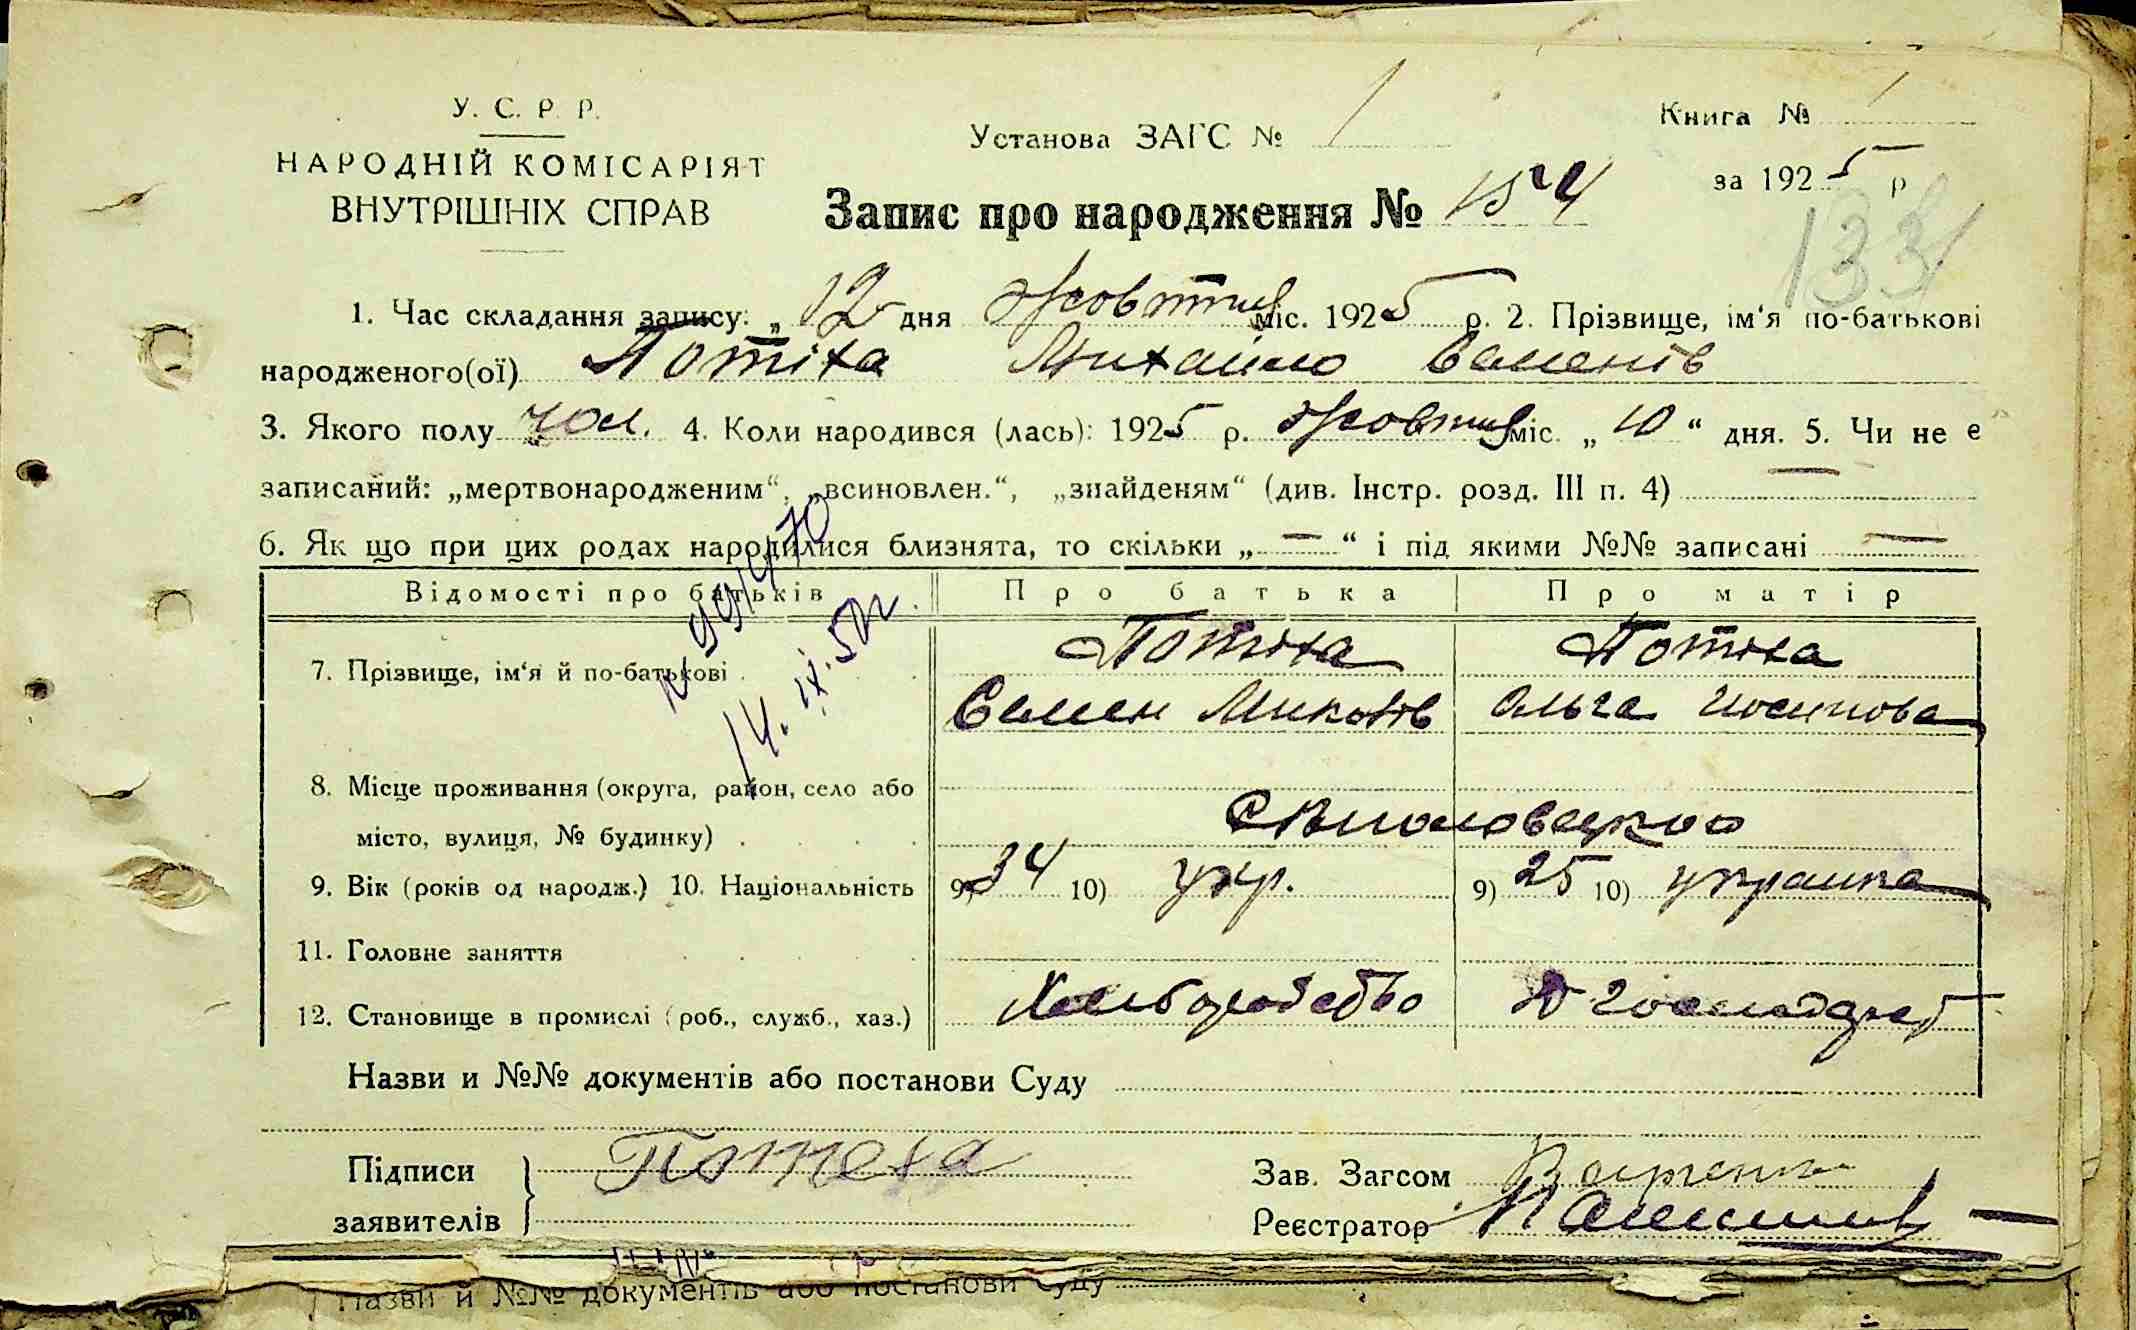 У. С. Р. Р.
НАРОДНІЙ КОМІСАРІЯТ
ВНУТРІШНІХ СПРАВ
Установа ЗАГС № 1
Книга № 1
за 1925 р
Запис про народження №
133
1. Час складання запису: „12 дня Жовтня міс. 1925 р. 2. Прізвище, ім‘я по-батькові
народженого(ої) Потіха Михайло Семенів
3. Якого полу чол. 4. Коли народився (лась): 1925 р. Жовтня міс. „10“ дня. 5. Чи не є
записаний: „мертвонародженим“, „всиновлен.“, „знайденям“ (див. Інстр. розд. III п. 4) —
6. Як що при цих родах народилися близнята, то скільки „—“ і під якими №№ записані —
Відомості про батьків Про батька Про матір
7. Прізвище, ім‘я й по-батькові Потіха Потіха
Семен Миколів Ольга Иосипова
14. IX. 50г.
8. Місце проживання (округа, район, село або
місто, вулиця, № будинку)
9. Вік (років од народж.) 10. Національність 9) 34 10) укр. 9) 25 10) украинка
11. Головне заняття
12. Становище в промислі (роб., служб., хаз.) Хлиборобство
Назви и №№ документів або постанови Суду
Підписи
заявителів
Потеха
Зав. Загсом
Реєстратор
Назви й №№ документів або постанови Суду